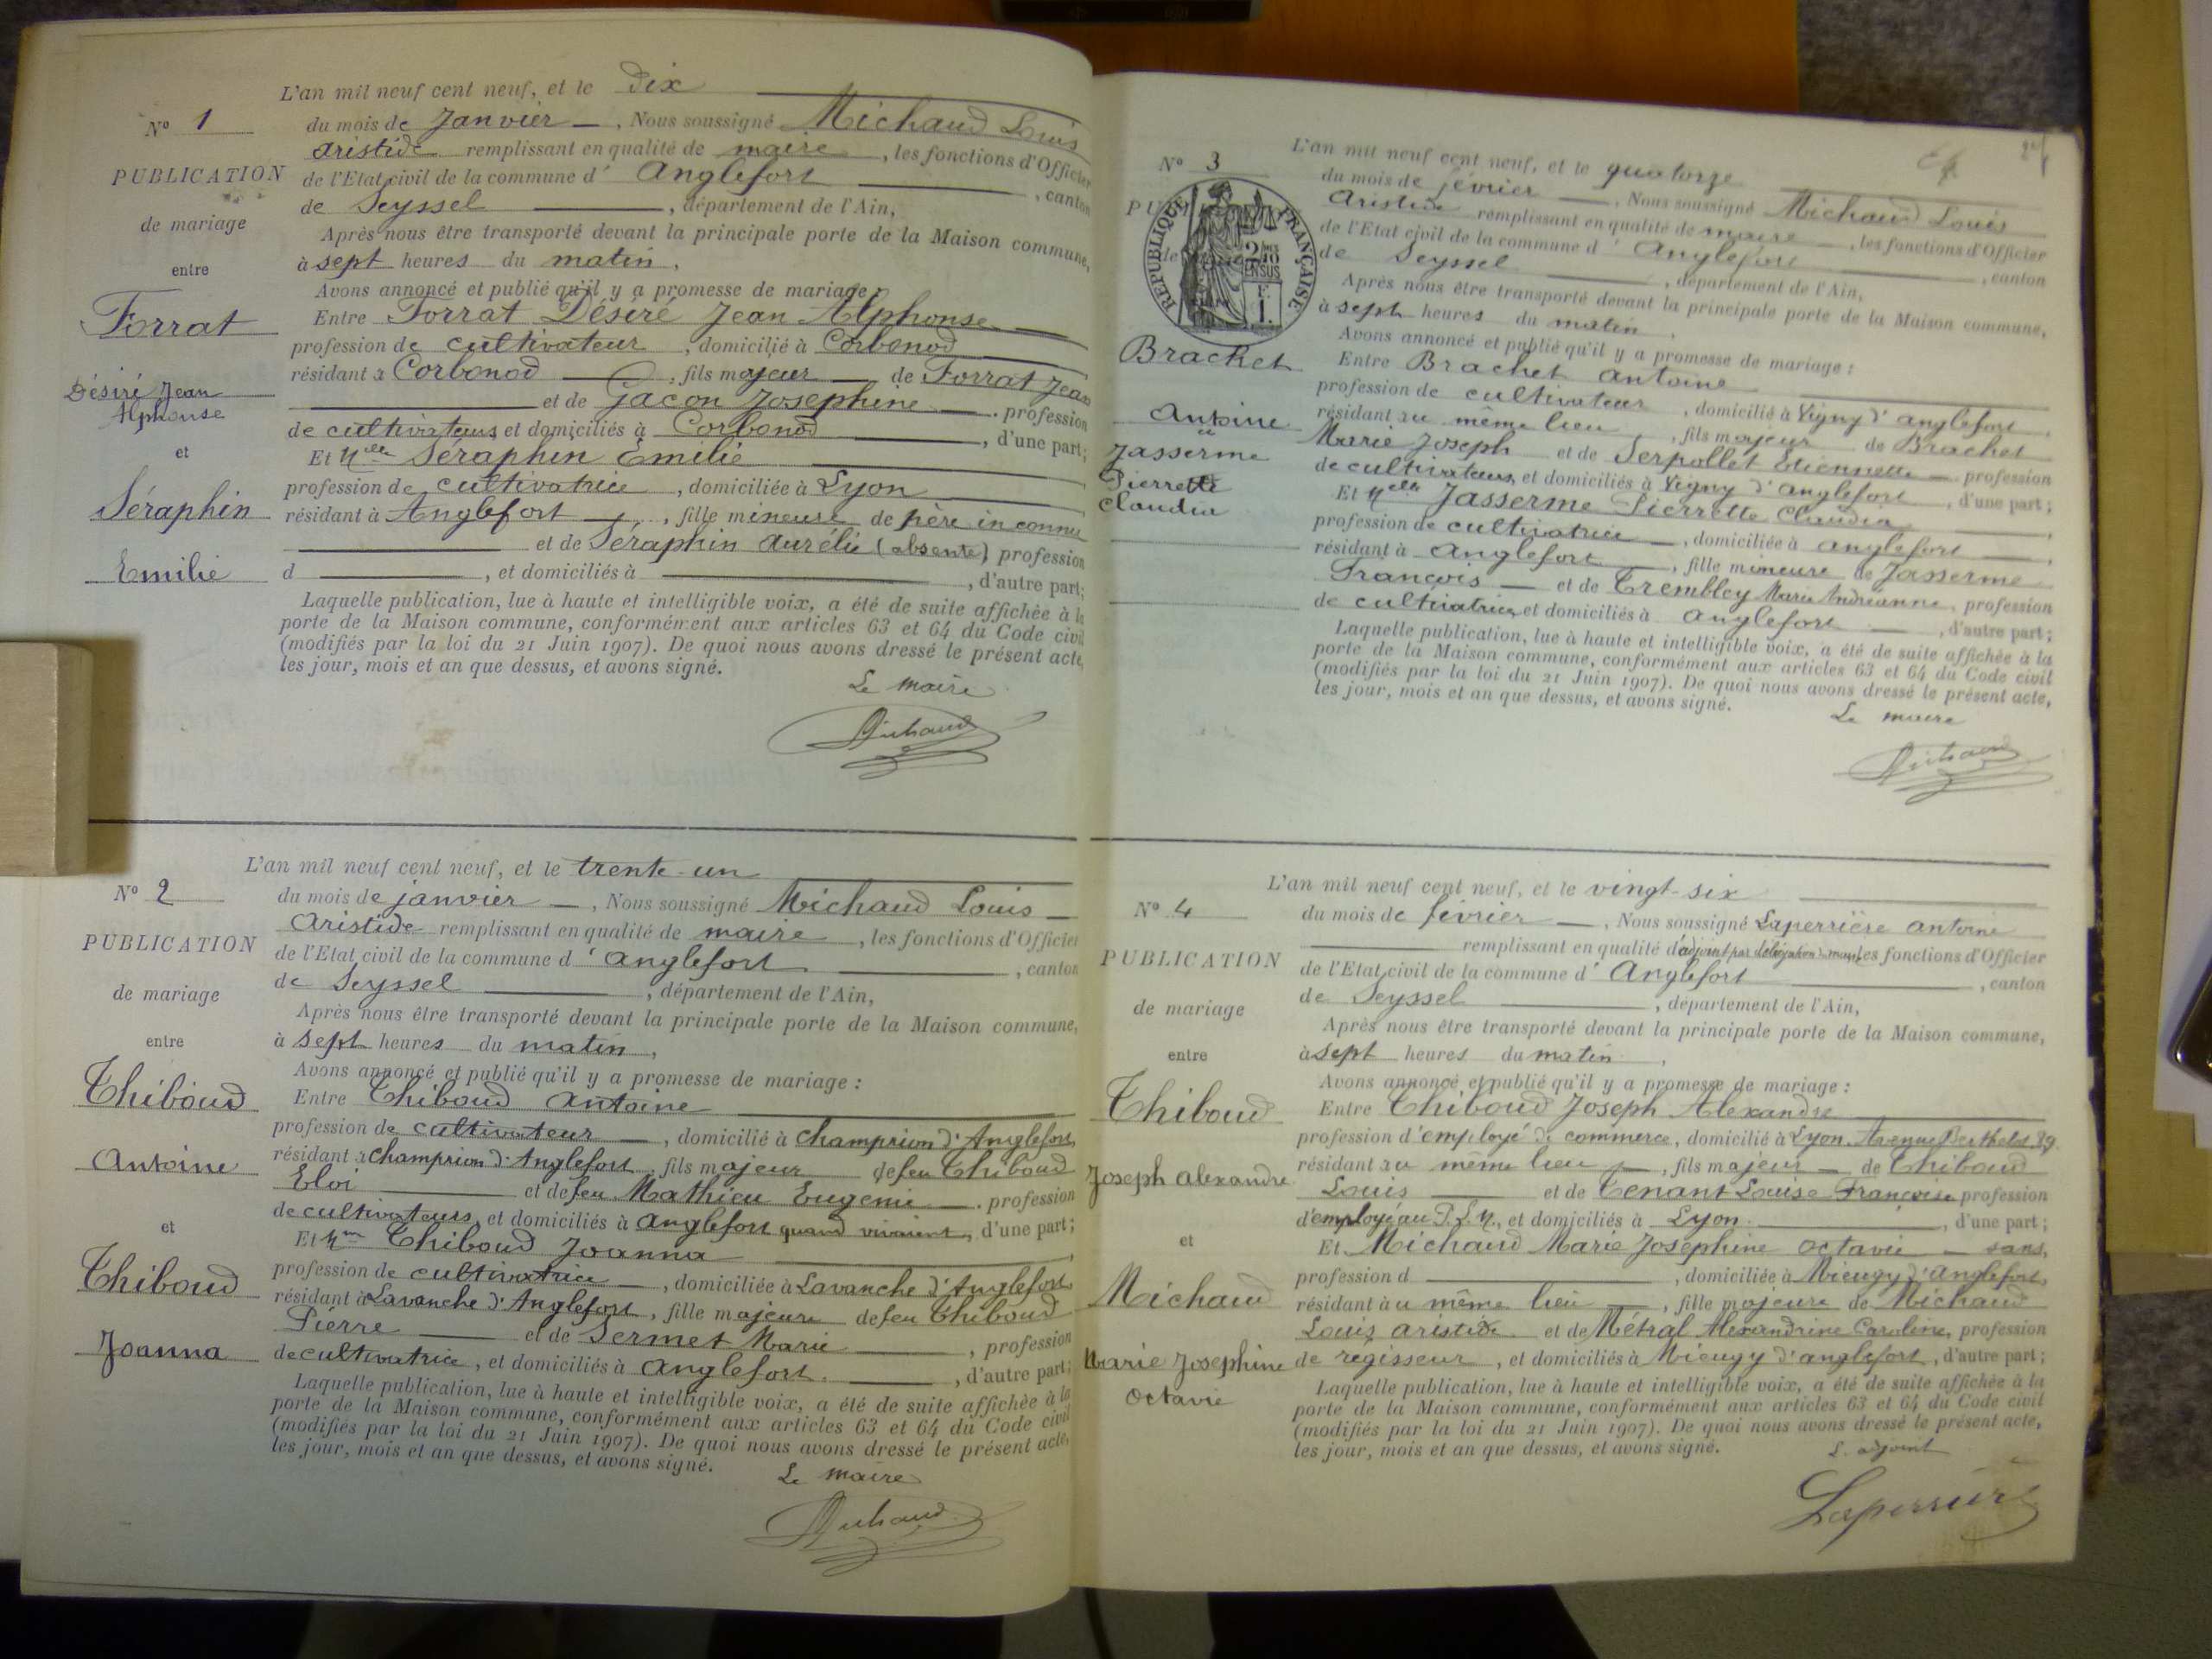 L'an mil neuf cent neuf, et le Dix
N° 1
du mois de Janvier, Nous soussigné Michaud Louis
Aristide remplissant en qualité de maire, les fonctions d'Officier
PUBLICATION
de l'Etat civil de la commune d' Anglefort, canton
de Seyssel, département de l'Ain,
de mariage
Après nous être transporté devant la principale porte de la Maison commune,
entre
à sept heures du matin.
Avons annoncé et publié qu'il y a promesse de mariage :
Forrat
Entre Forrat Désiré Jean Alphonse
profession de cultivateur, domicilié à Corbonod
résidant à Corbonod, fils majeur de Forrat Jean
Désiré Jean
Alphonse
et de Gacon Josephine. profession
de cultivateurs et domiciliés à Corbonod, d'une part;
et
Et Melle Séraphin Emilie
profession de cultivatrice, domiciliée à Lyon
Séraphin
résidant à Anglefort, fille mineure de père inconnu
et de Séraphin Aurélie (absente), profession
Emilie
d, et domiciliés à, d'autre part;
Laquelle publication, lue à haute et intelligible voix, a été de suite affichée à la
porte de la Maison commune, conformément aux articles 63 et 64 du Code civil
(modifiés par la loi du 21 Juin 1907). De quoi nous avons dressé le présent acte,
les jour, mois et an que dessus, et avons signé.
Le maire
Michaud
L'an mil neuf cent neuf, et le trente-un
N° 2
du mois de janvier, Nous soussigné Michaud Louis
Aristide remplissant en qualité de maire, les fonctions d'Officier
PUBLICATION
de l'Etat civil de la commune d' Anglefort, canton
de Seyssel, département de l'Ain,
de mariage
Après nous être transporté devant la principale porte de la Maison commune,
entre
à sept heures du matin,
Avons annoncé et publié qu'il y a promesse de mariage :
Thiboud
Entre Thiboud Antoine
profession de cultivateur, domicilié à Champrion d'Anglefort,
Antoine
résidant à Champrion d'Anglefort, fils majeur de feu Thiboud
Eloi et de feu Mathieu Eugenie. profession
de cultivateurs, et domiciliés à Anglefort quand vivaient, d'une part;
et
Et Mme Thiboud Joanna
profession de cultivatrice, domiciliée à Lavanche d'Anglefort,
Thiboud
résidant à Lavanche d'Anglefort, fille majeure de feu Thiboud
Pierre et de Sermet Marie, profession
Joanna
de cultivatrice, et domiciliés à Anglefort., d'autre part;
Laquelle publication, lue à haute et intelligible voix, a été de suite affichée à la
porte de la Maison commune, conformément aux articles 63 et 64 du Code civil
(modifiés par la loi du 21 Juin 1907). De quoi nous avons dressé le présent acte,
les jour, mois et an que dessus, et avons signé.
Le maire
Michaud
L'an mil neuf cent neuf, et le quatorze
N° 3
du mois de février, Nous soussigné Michaud Louis
Aristide remplissant en qualité de maire, les fonctions d'Officier
de l'Etat civil de la commune d' Anglefort, canton
de Seyssel, département de l'Ain,
RÉPUBLIQUE FRANÇAISE
Après nous être transporté devant la principale porte de la Maison commune,
à sept heures du matin.
Avons annoncé et publié qu'il y a promesse de mariage :
Brachet
Entre Brachet Antoine
profession de cultivateur, domicilié à Vigny d'Anglefort,
Antoine
résidant au même lieu, fils majeur de Brachet
et
Marie Joseph et de Serpollet Etiennette profession
Jasserme
de cultivateurs, et domiciliés à Vigny d'Anglefort, d'une part;
Pierrette
Et Melle Jasserme Pierrette Claudia
Claudia
profession de cultivatrice, domiciliée à Anglefort,
résidant à Anglefort, fille mineure de Jasserme
François et de Trembley Marie Andréanne, profession
de cultivatrice, et domiciliés à Anglefort, d'autre part;
Laquelle publication, lue à haute et intelligible voix, a été de suite affichée à la
porte de la Maison commune, conformément aux articles 63 et 64 du Code civil
(modifiés par la loi du 21 Juin 1907). De quoi nous avons dressé le présent acte,
les jour, mois et an que dessus, et avons signé.
Le maire
Michaud
L'an mil neuf cent neuf, et le vingt-six
N° 4
du mois de février, Nous soussigné Laperrière Antoine
remplissant en qualité d'adjoint par délégation du maire, les fonctions d'Officier
PUBLICATION
de l'Etat civil de la commune d' Anglefort, canton
de Seyssel, département de l'Ain,
de mariage
Après nous être transporté devant la principale porte de la Maison commune,
entre
à sept heures du matin,
Avons annoncé et publié qu'il y a promesse de mariage :
Thiboud
Entre Thiboud Joseph Alexandre
profession d'employé de commerce, domicilié à Lyon Avenue Berthelot 39
Joseph Alexandre
résidant au même lieu, fils majeur de Thiboud
Louis et de Tenant Louise Françoise profession
d'employé au P.L.M., et domiciliés à Lyon., d'une part;
et
Et Michaud Marie Josephine Octavie sans,
profession d, domiciliée à Mieugy d'Anglefort,
Michaud
résidant au même lieu, fille majeure de Michaud
Louis Aristide et de Métral Alexandrine Caroline, profession
Marie Josephine
Octavie
de régisseur, et domiciliés à Mieugy d'Anglefort, d'autre part;
Laquelle publication, lue à haute et intelligible voix, a été de suite affichée à la
porte de la Maison commune, conformément aux articles 63 et 64 du Code civil
(modifiés par la loi du 21 Juin 1907). De quoi nous avons dressé le présent acte,
les jour, mois et an que dessus, et avons signé.
L'adjoint
Laperrière